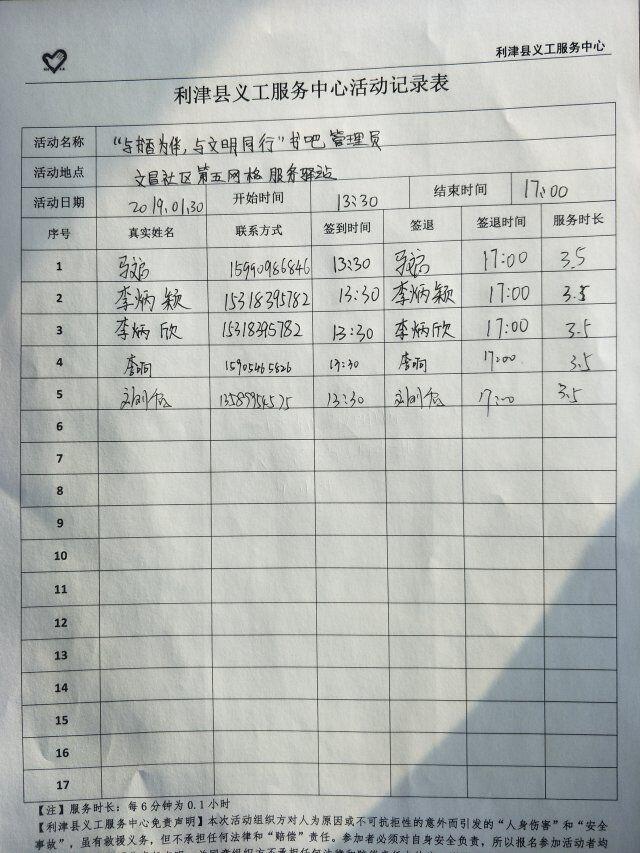 利津县义工服务中心
利津县义工服务中心活动记录表
活动名称 "与书香为伴,与文明同行"书吧管理员
活动地点 文昌社区第五网格服务驿站
活动日期 2019.01.30 开始时间 13:30 结束时间 17:00
序号 真实姓名 联系方式 签到时间 签退 签退时间 服务时长
1 15990986846 13:30 17:00 3.5
2 李炳颖 15318395782 13:30 李炳颖 17:00 3.5
3 李炳欣 15318395782 13:30 李炳欣 17:00 3.5
4 15905465826 13:30 17:00 3.5
5 13:30 17:00 3.5
6
7
8
9
10
11
12
13
14
15
16
17
【注】服务时长:每6分钟为0.1小时
【利津县义工服务中心免责声明】本次活动组织方对人为原因或不可抗拒性的意外而引发的"人身伤害"和"安全
事故",虽有救援义务,但不承担任何法律和"赔偿"责任。参加者必须对自身安全负责,所以报名参加活动者均